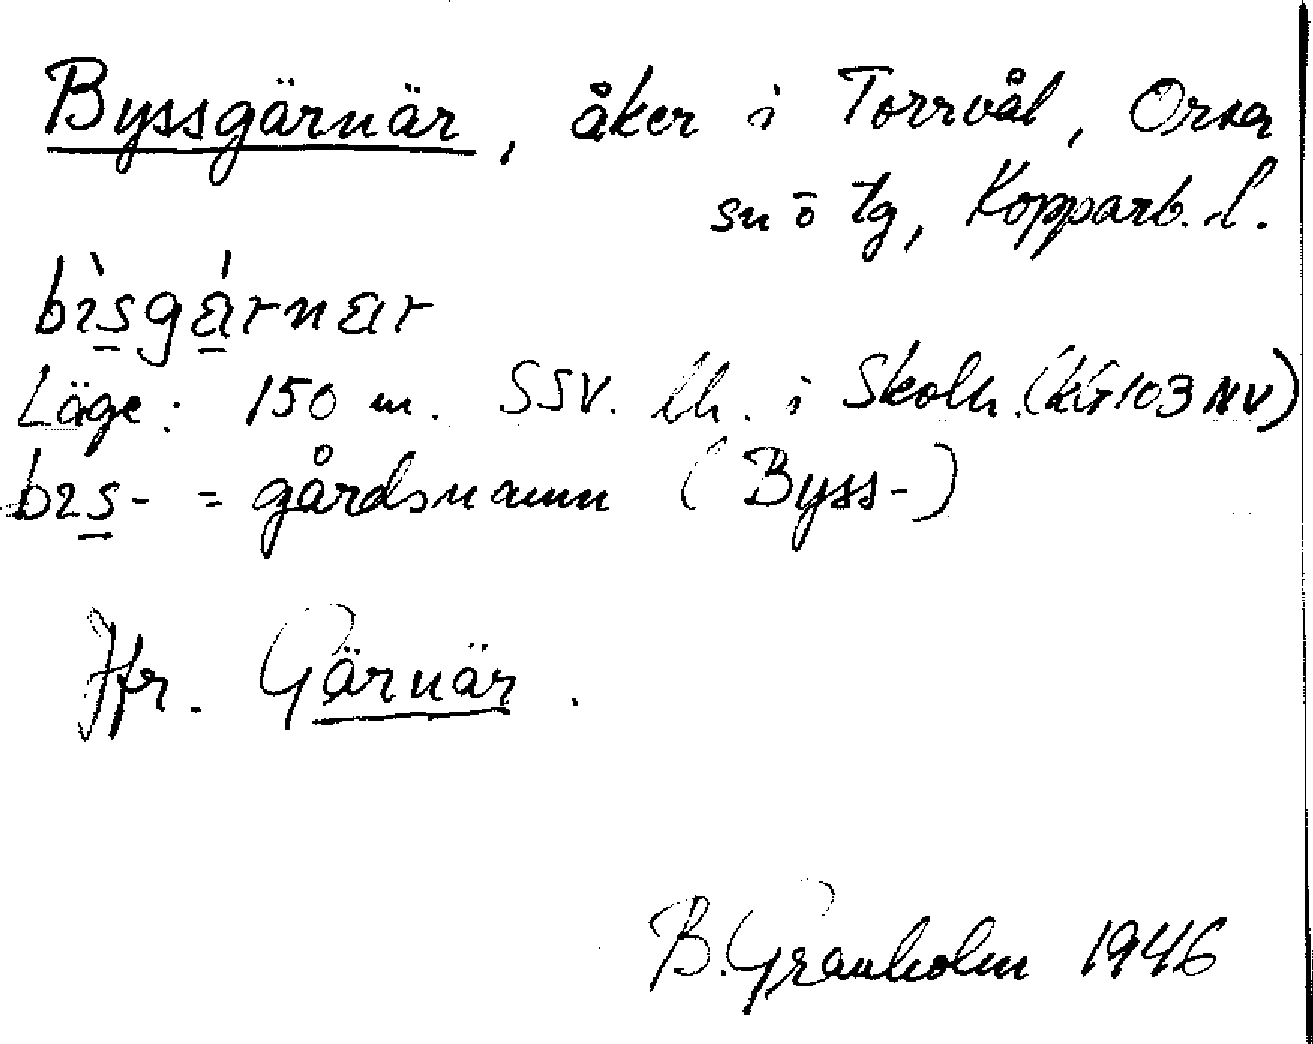 Byssgärnär, åker i Torrvål, Orsa
sn o tg, Kopparb. l.
Läge: 150 m. SSV. lh. i Skolh. (KG103NV)
= gårdsnamn (Byss-)
Jfr. Gärnär.
B. Granholm 1946